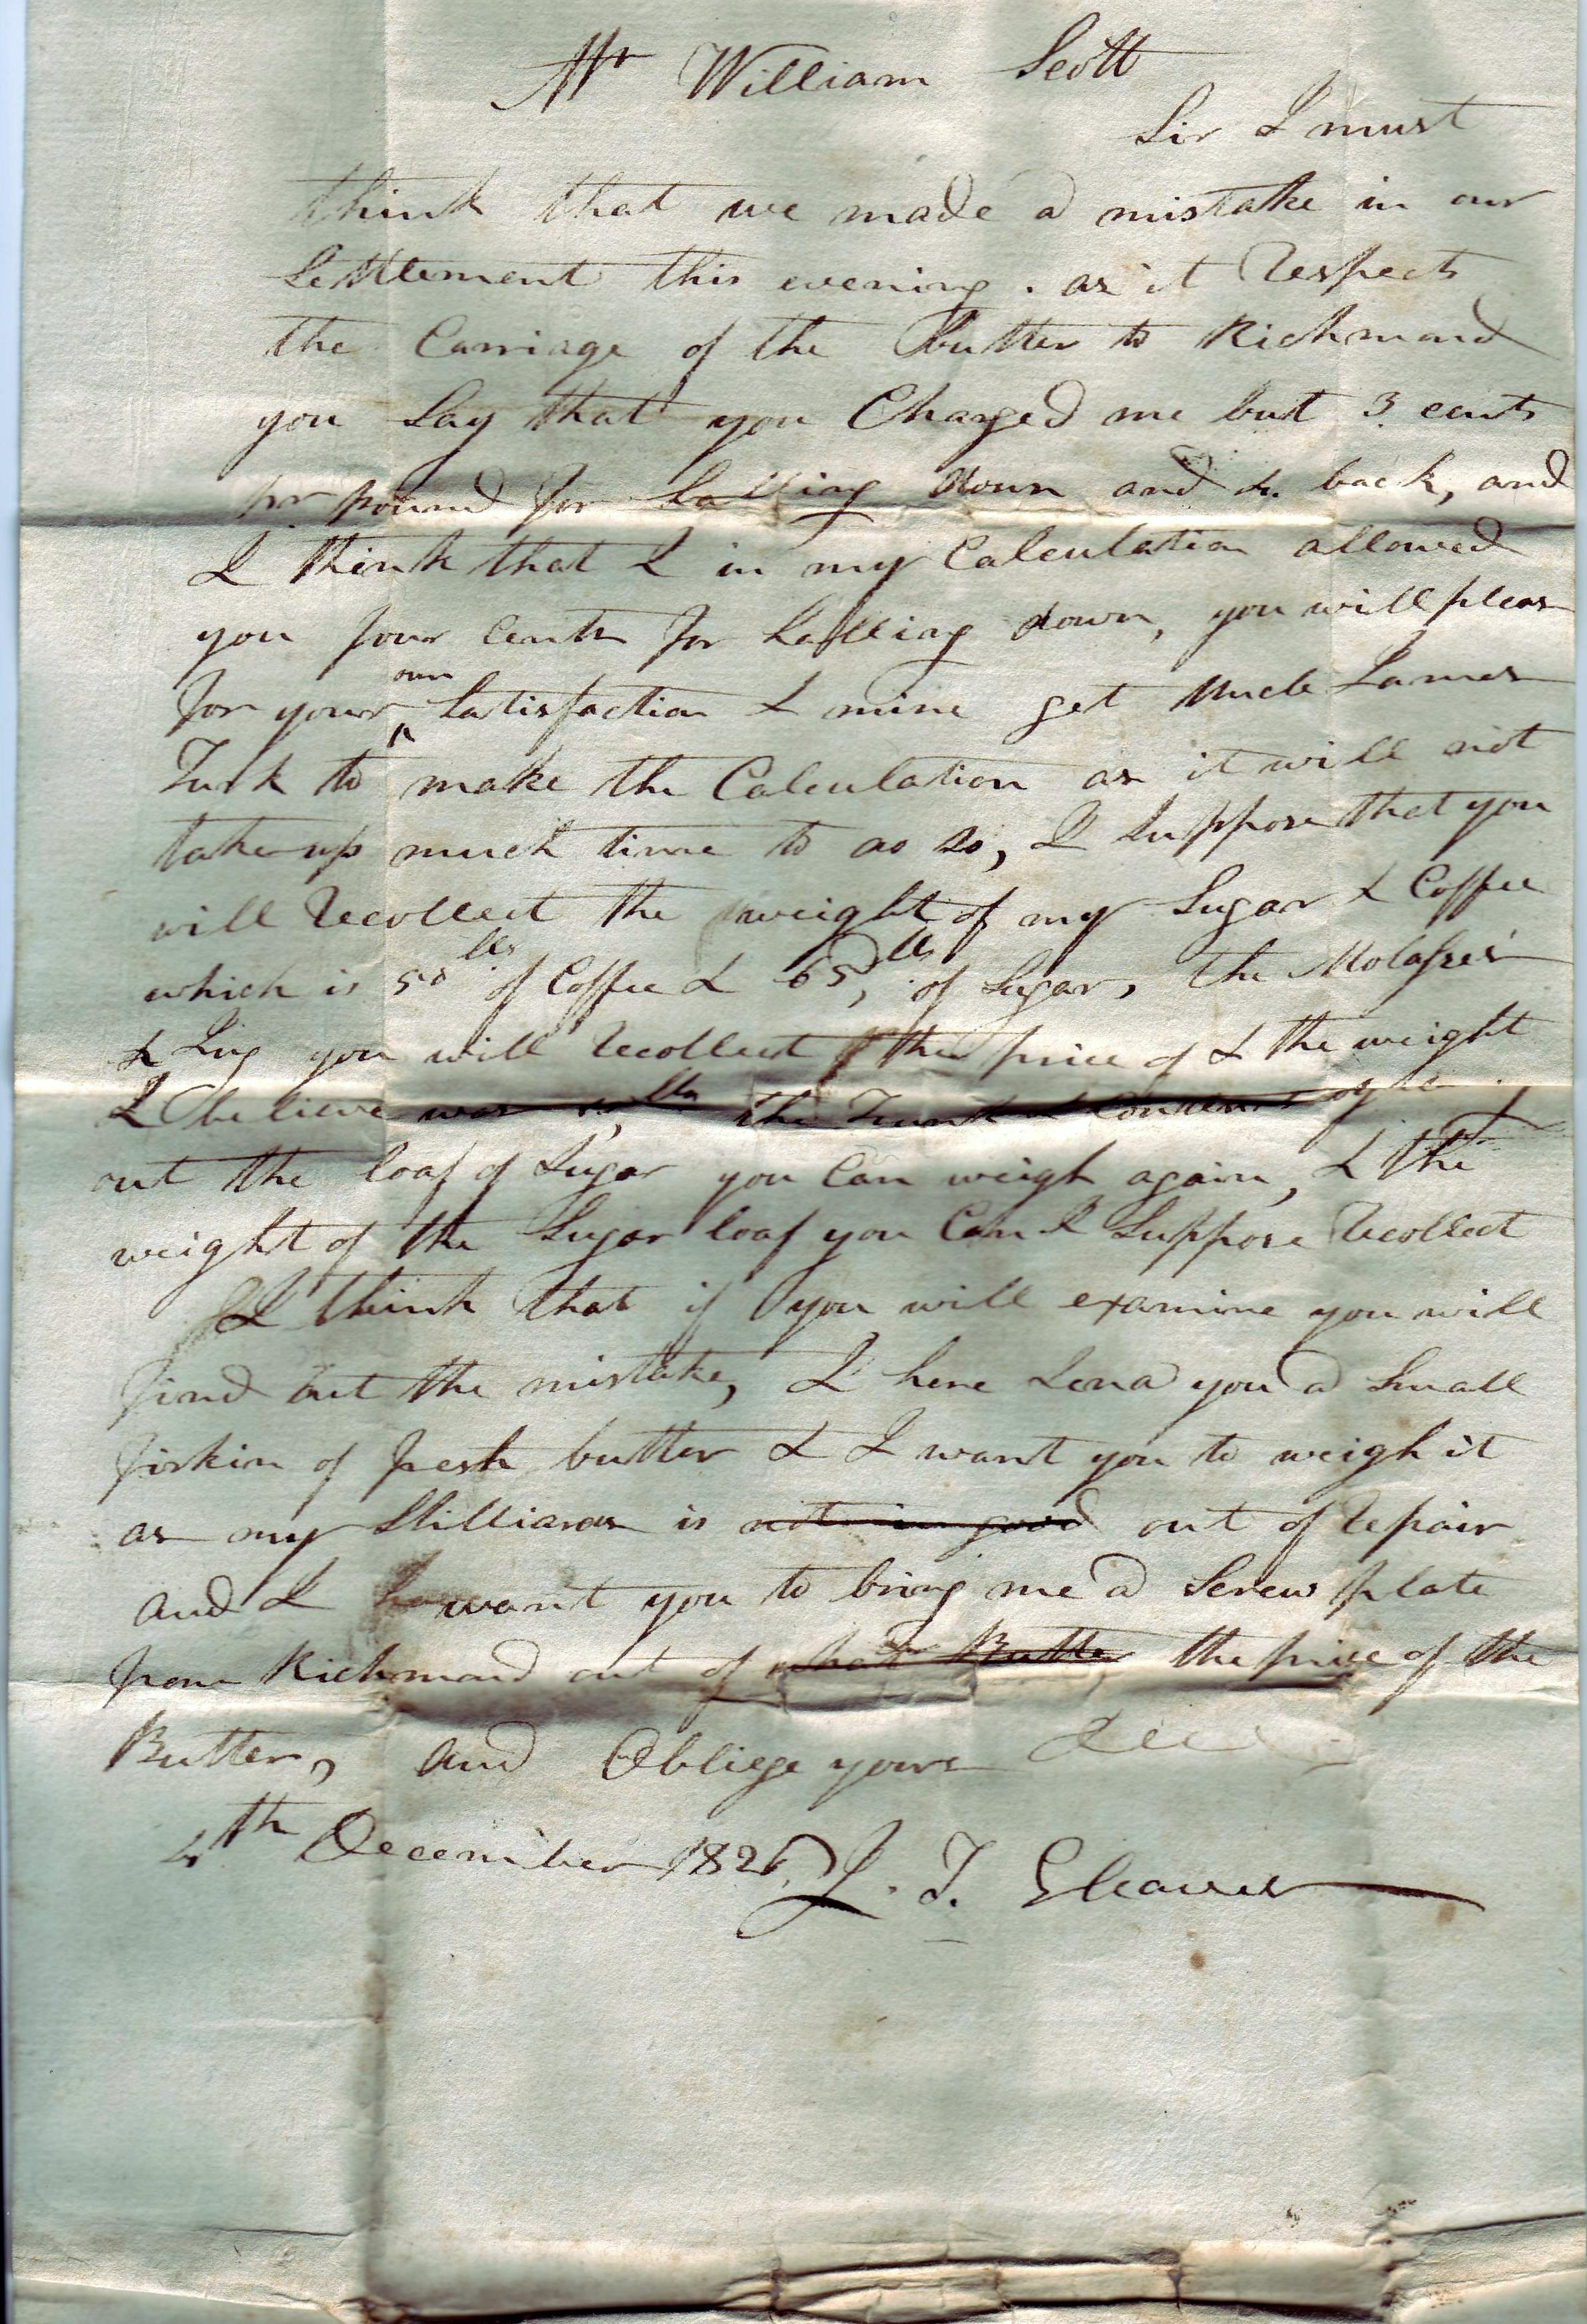 Mr William Scott
Sir I must
think that we made a mistake in our
Settlement this evening. as it Respects
the Carriage of the butter to Richmond
you Say that you Charged me but 3 cents
pr pound for Halling down and & back, and
I think that I in my Calculation allowed
you four Cents for Halling down, you will pleas
for your own Satisfaction & mine get Uncle James
Turk to make the Calculation as it will not
take up much time to do so, I Suppose that you
will Recollect the weight of my Sugar & Coffee
which is 50 lbs of Coffee & 65, lbs of Sugar, the Molasses
& Jug you will Recollect the price of & the weight
I believe was lbs the Trunk & Contents of it
out the loaf of Sugar you Can weigh again, & the
weight of the Sugar loaf you Can I Suppose Recollect
I think that if you will examine you will
find out the mistake, I here Send you a Small
firkin of fresh butter & I want you to weigh it
as my Stilliards is not in good out of Repair
and I want you to bring me a Screw plate
from Richmond out of that Butter the price of the
Butter, and Obliege yours &c
4th December 1826 J. T. Gleaves